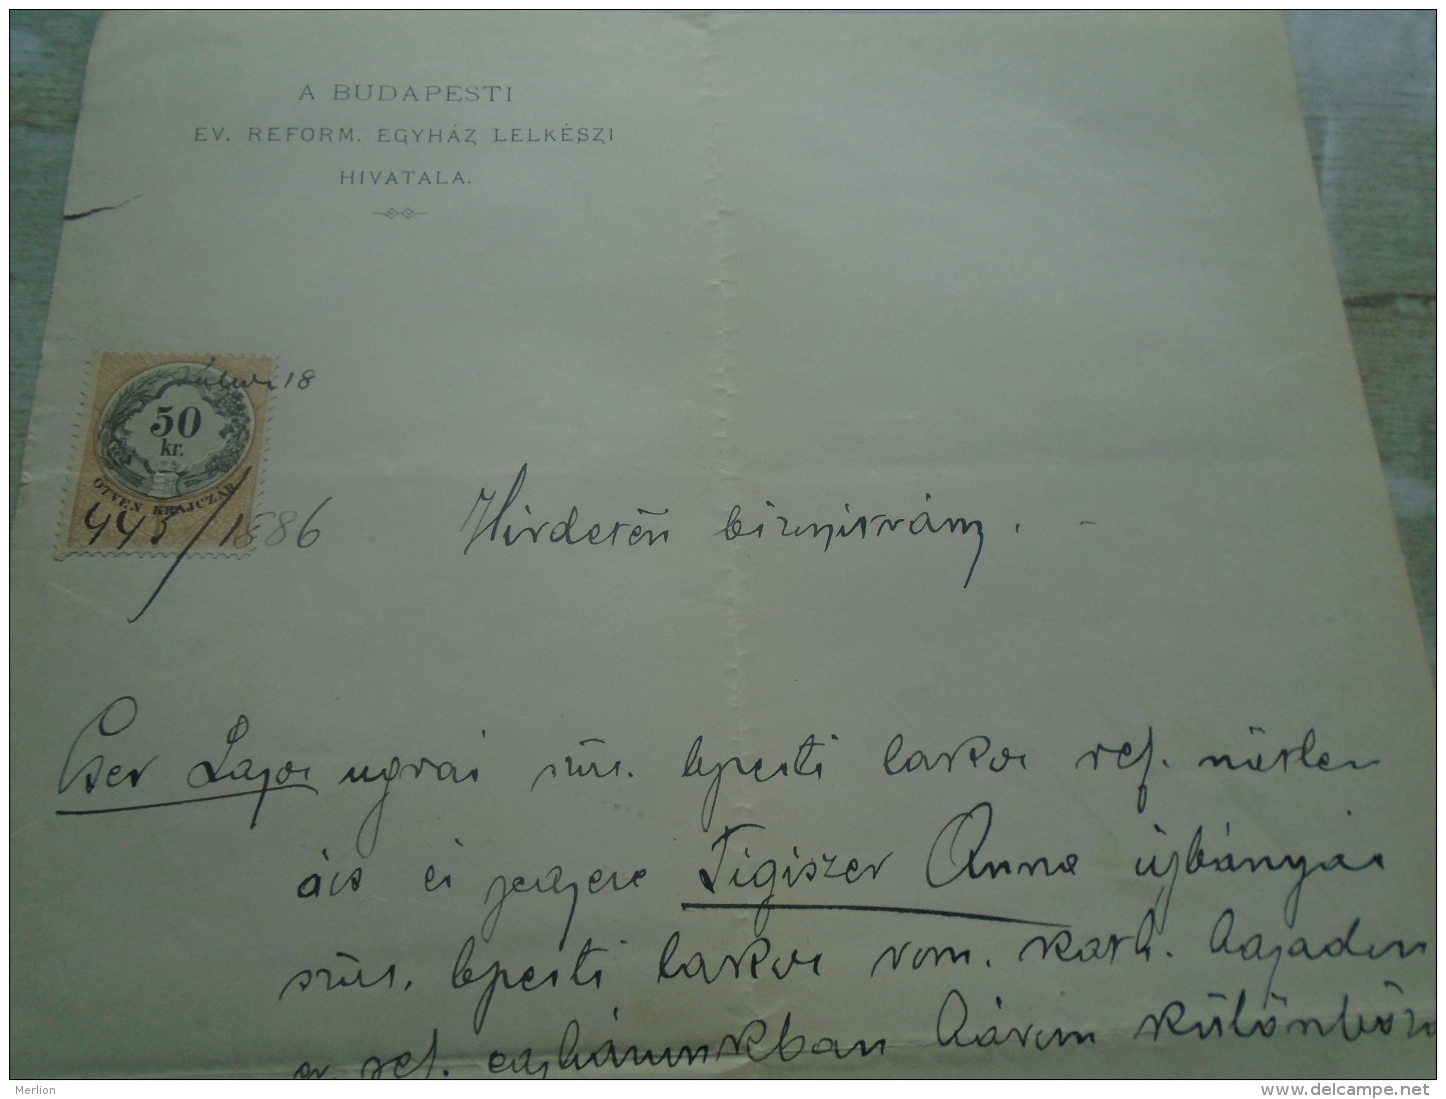 A BUDAPESTI
EV. REFORM. EGYHÁZ LELKÉSZI
HIVATALA.
18
50
kr.
ÖTVEN KRAJCZÁR
445/1886
Hirdetési bizonyitvány.
Cser Lajos ugrai szül. bpesti lakos ref. nőtlen
ács és jegyese Tigiszer Anna újbányai
szül. bpesti lakos rom. kath. hajadon
a ref. egyházunkban három különböző
Merlion
www.delcampe.net